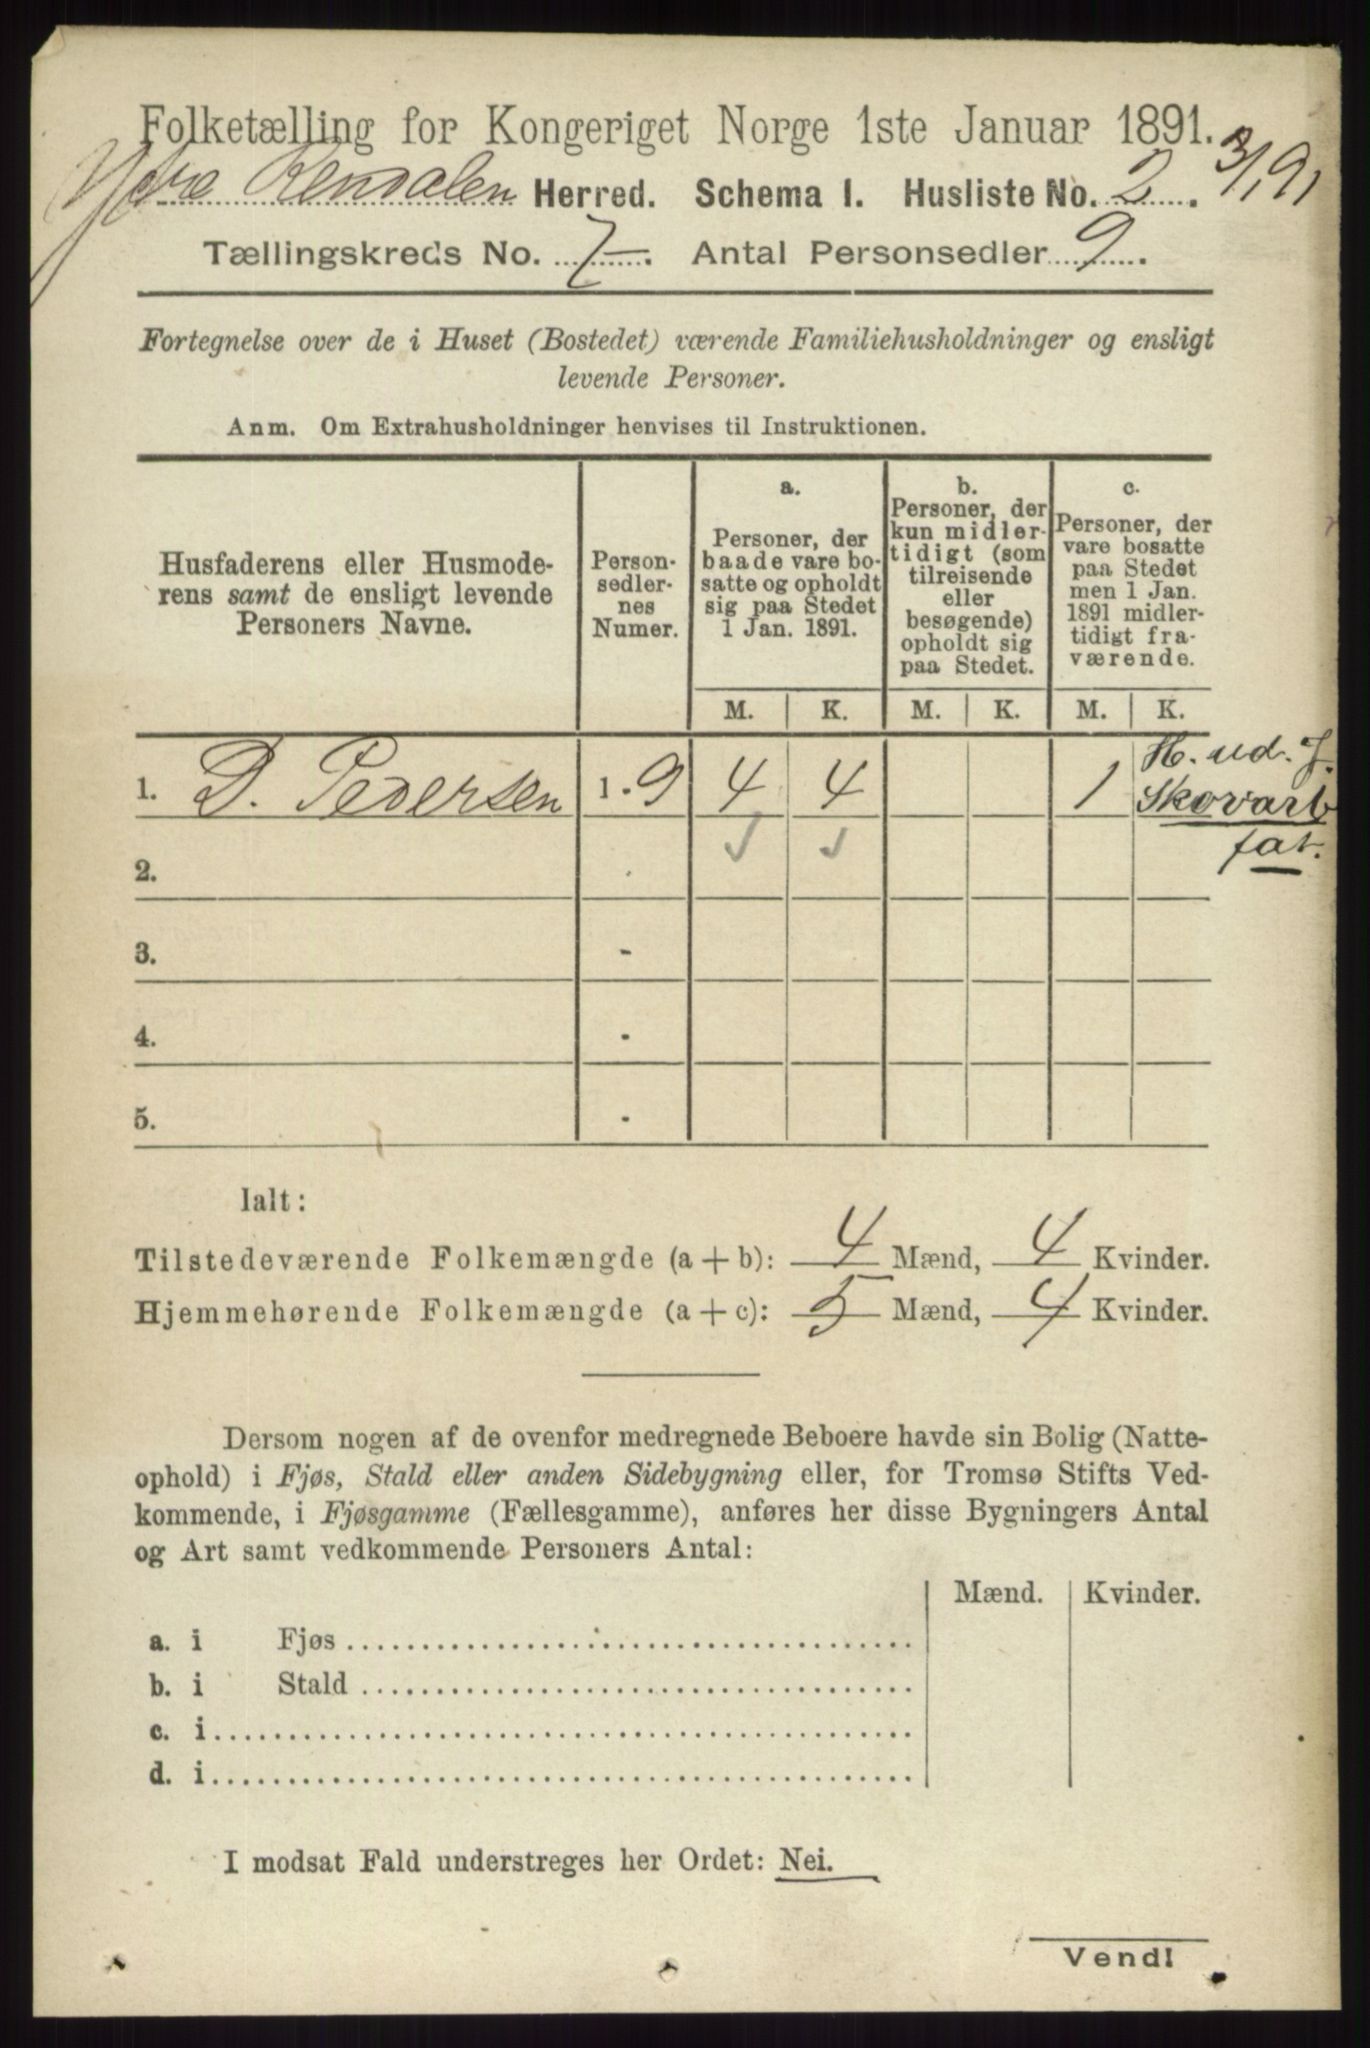 Folketælling for Kongeriget Norge 1ste Januar 1891.
Ytre Rendalen Herred. Schema I. Husliste No. 2. 3/1 91
Tællingskreds No. 7. Antal Personsedler 9.
Fortegnelse over de i Huset (Bostedet) værende Familiehusholdninger og ensligt
levende Personer.
Anm. Om Extrahusholdninger henvises til Instruktionen.
Husfaderens eller Husmode-
rens samt de ensligt levende
Personers Navne.
Person-
sedler-
nes
Numer.
a.
Personer, der
baade vare bo-
satte og opholdt
sig paa Stedet
1 Jan. 1891.
b.
Personer, der
kun midler-
tidigt (som
tilreisende
eller
besøgende)
opholdt sig
paa Stedet.
c.
Personer, der
vare bosatte
paa Stedet
men 1 Jan.
1891 midler-
tidigt fra-
værende.
M. K. M. K. M. K.
1. D. Pedersen 1 - 9 4 4 1 H. ud. J.
Skovarb
fat.
2. -
3. -
4. -
5. -
Ialt:
Tilstedeværende Folkemængde (a + b): 4 Mænd, 4 Kvinder.
Hjemmehørende Folkemængde (a + c): 5 Mænd, 4 Kvinder.
Dersom nogen af de ovenfor medregnede Beboere havde sin Bolig (Natte-
ophold) i Fjøs, Stald eller anden Sidebygning eller, for Tromsø Stifts Ved-
kommende, i Fjøsgamme (Fællesgamme), anføres her disse Bygningers Antal
og Art samt vedkommende Personers Antal:
Mænd. Kvinder.
a. i Fjøs
b. i Stald
c. i
d. i
I modsat Fald understreges her Ordet: Nei.
Vend!